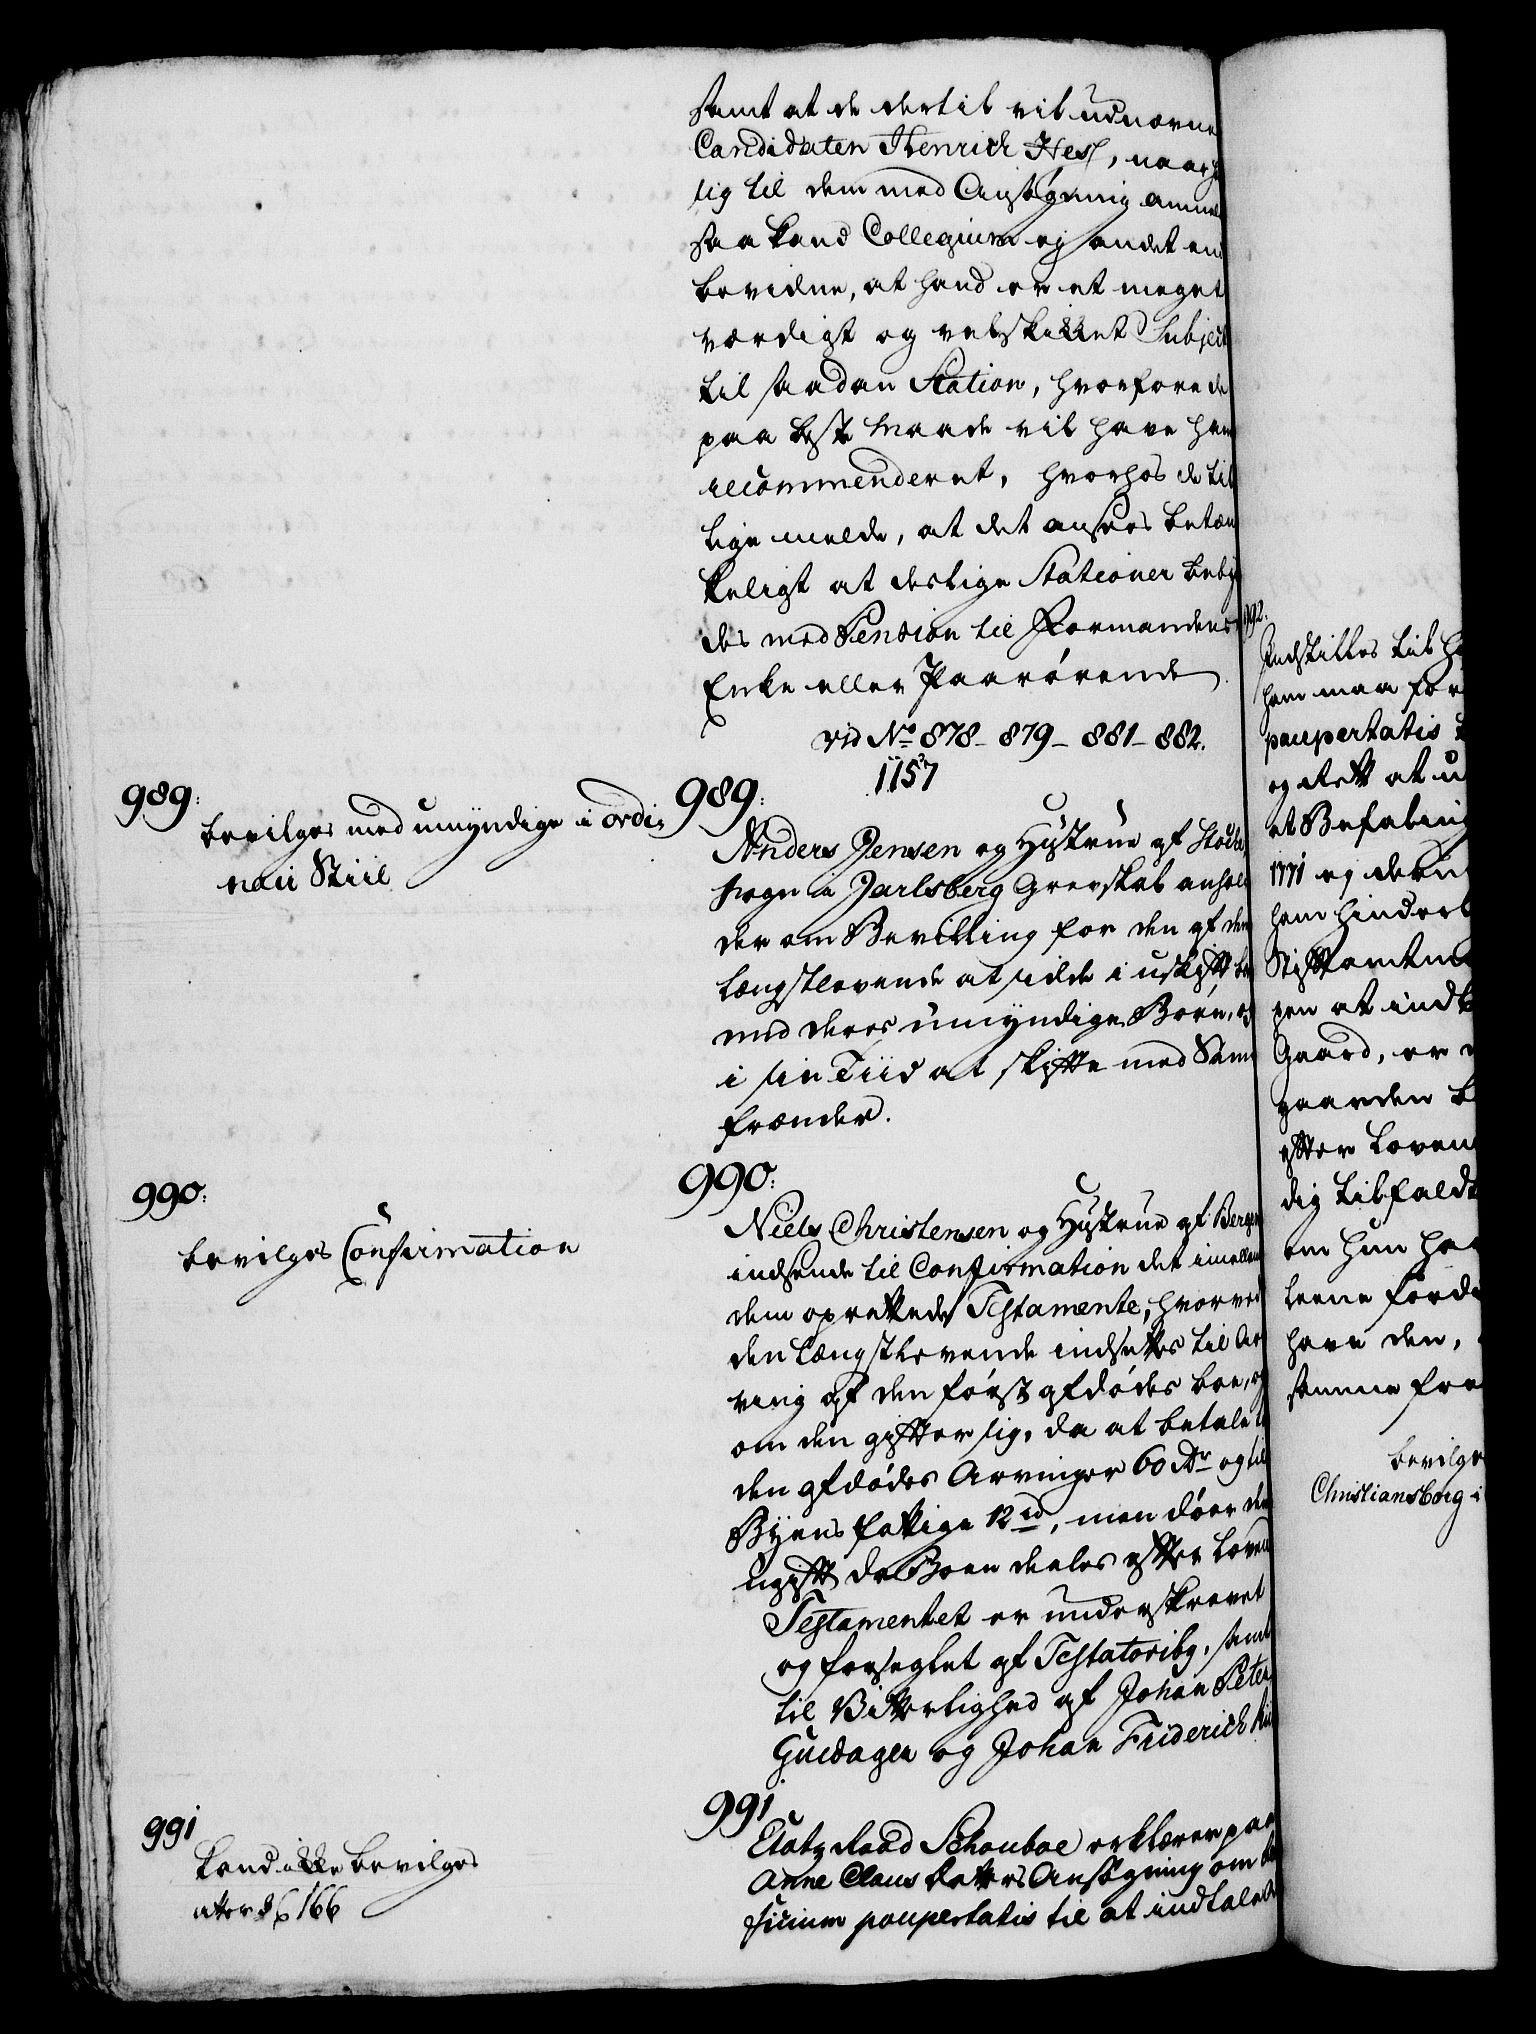 samt at de dertil vil udnævne
Candidaten Henrich Hess, naar
sig til dem med Ansøgning anmel
saa kand Collegium ej andet end
bevidne, at hand er et meget
værdigt og velskikket Subject
til saadan Station, hvorfore de
paa beste Maade vil have ham
recommenderet, hvorhos de til
lige melde, at det ansees betæn
keligt at deslige Stationer beby
des med Pension til Formandens
Enke eller Paarørende
vid No 878 - 879 - 881 - 882.
1157
989:
bevilges med umyndige i ordi
nair Stiil
989:
Anders Jensen og Hustrue af
Sogn i Jarlsberg Grevskab anhol
der om Bevilling for den af dem
længstlevende at sidde i uskift
med deres umyndige Børn, og
i sin Tiid at skifte med Sam
frænder.
990:
bevilges Confirmation
990:
Niels Christensen og Hustrue af Bergen
indsende til Confirmation det imellem
dem oprettede Testamente, hvorved
den længstlevende indsettes til Ar
ving af den først afdødes boe, og
om den gifter sig, da at betale
den afdødes Arvinger 60 rdr og til
Byens fattige 12 rd, men døer den
ugift da Boen deeles efter Loven
Testamentet er underskrevet
og forseglet af Testatoribg, samt
til Vitterlighed af Johan Peter
Guldagen og Johan Friderich
991
kand ikke bevilges
166
991
Etatz Raad Schouboe erklærer paa
Anne Claus datters Ansøgning om
ficium paupertatis til at indtale
992.
Indstilles til
ham maa for
paupertatis
og Rett at
et Befaling
1771 og
ham hinderl
Stiftamtm
gen at indk
Gaard, er
gaarden
efter Loven
dig tilfaldt
om hun ha
leene fordi
have den,
samme fra
bevilge
Christiansborg